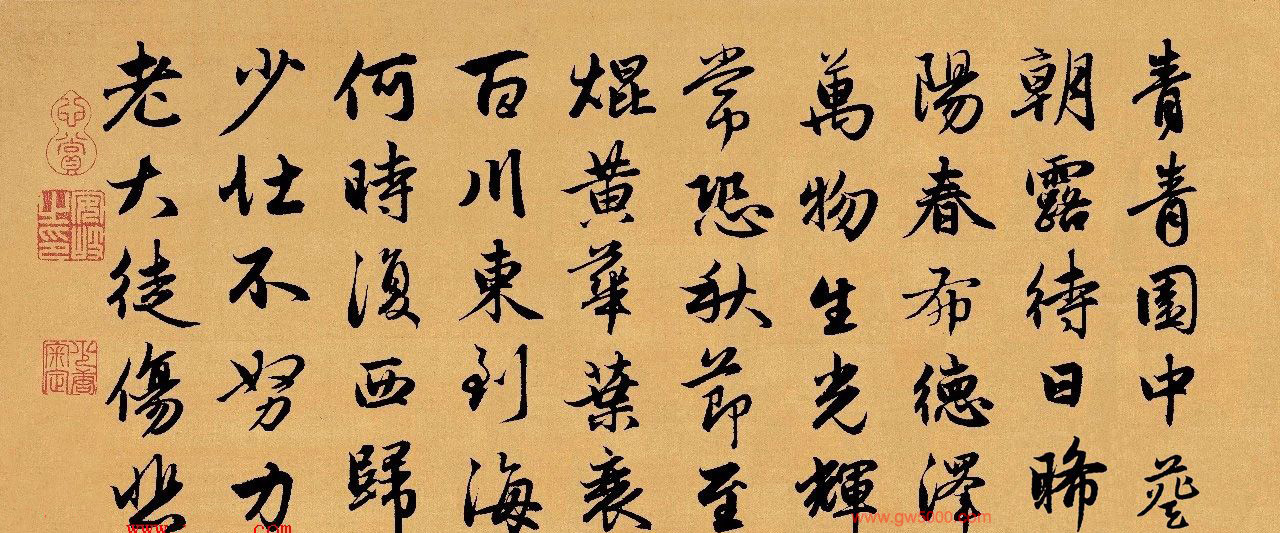 青青園中葵
朝露待日晞
陽春布德澤
萬物生光輝
常恐秋節至
焜黄華葉衰
百川東到海
何時復西歸
少壮不努力
老大徒傷悲
www.gw5000.com
www com